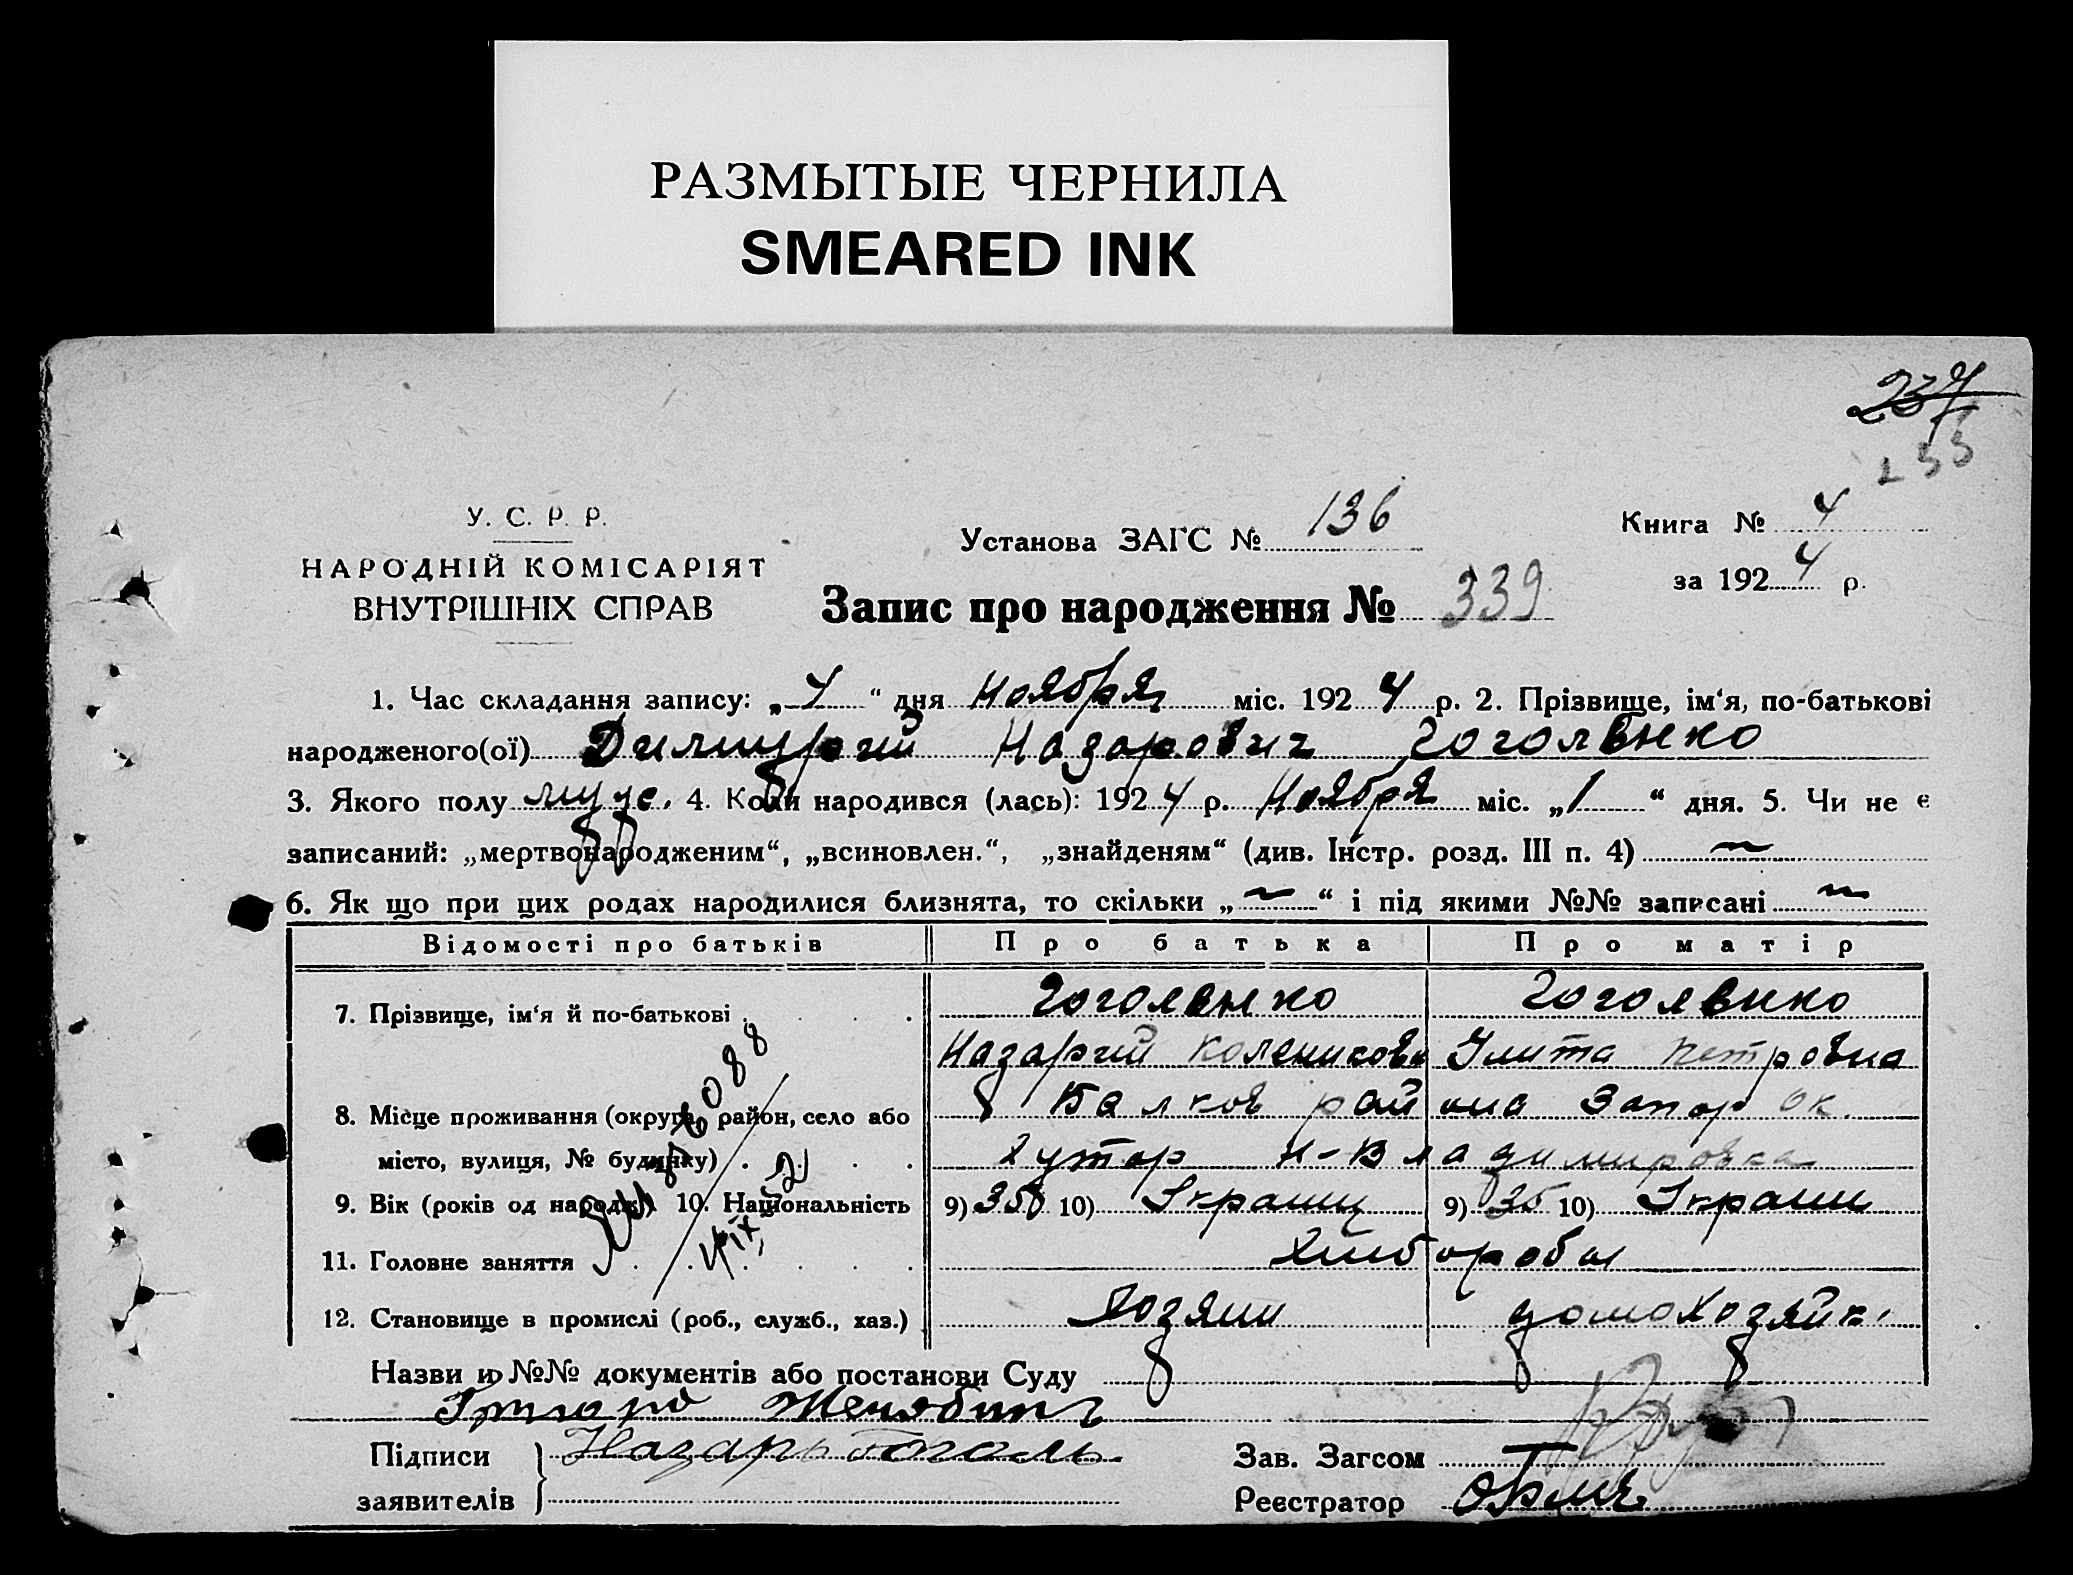 РАЗМЫТЫЕ ЧЕРНИЛА
SMEARED INK
237
255
У. С. Р. Р.
НАРОДНІЙ КОМІСАРІЯТ
ВНУТРІШНІХ СПРАВ
Установа ЗАГС № 136
Книга № 4
за 1924 р.
Запис про народження № 339
1. Час складання запису: „4“ дня Ноября міс. 1924 р. 2. Прізвище, ім‘я, по-батькові
народженого(ої) Димитрий Назарович Гоголенко
3. Якого полу муж. 4. Коли народився (лась): 1924 р. Ноября міс. „1“ дня. 5. Чи не є
записаний: „мертвонародженим“, „всиновлен.“, „знайденям“ (див. Інстр. розд. III п. 4) —
6. Як що при цих родах народилися близнята, то скільки „—“ і під якими №№ записані —
Відомості про батьків Про батька Про матір
7. Прізвище, ім‘я й по-батькові Гоголенко Гоголенко
Назарий Улита Петровна
8. Місце проживання (округа, район, село або Балков района Запор ок.
місто, вулиця, № будинку) Хутор Н-Владимировка
9. Вік (років од народж.) 10. Національність 9) 35 10) Украин 9) 35 10) Украин
11. Головне заняття Хлибороби
12. Становище в промислі (роб., служб., хаз.) Хозяин домохозяйк.
Назви й №№ документів або постанови Суду
Підписи Назарь Гоголь
заявителів
Зав. Загсом
Реєстратор